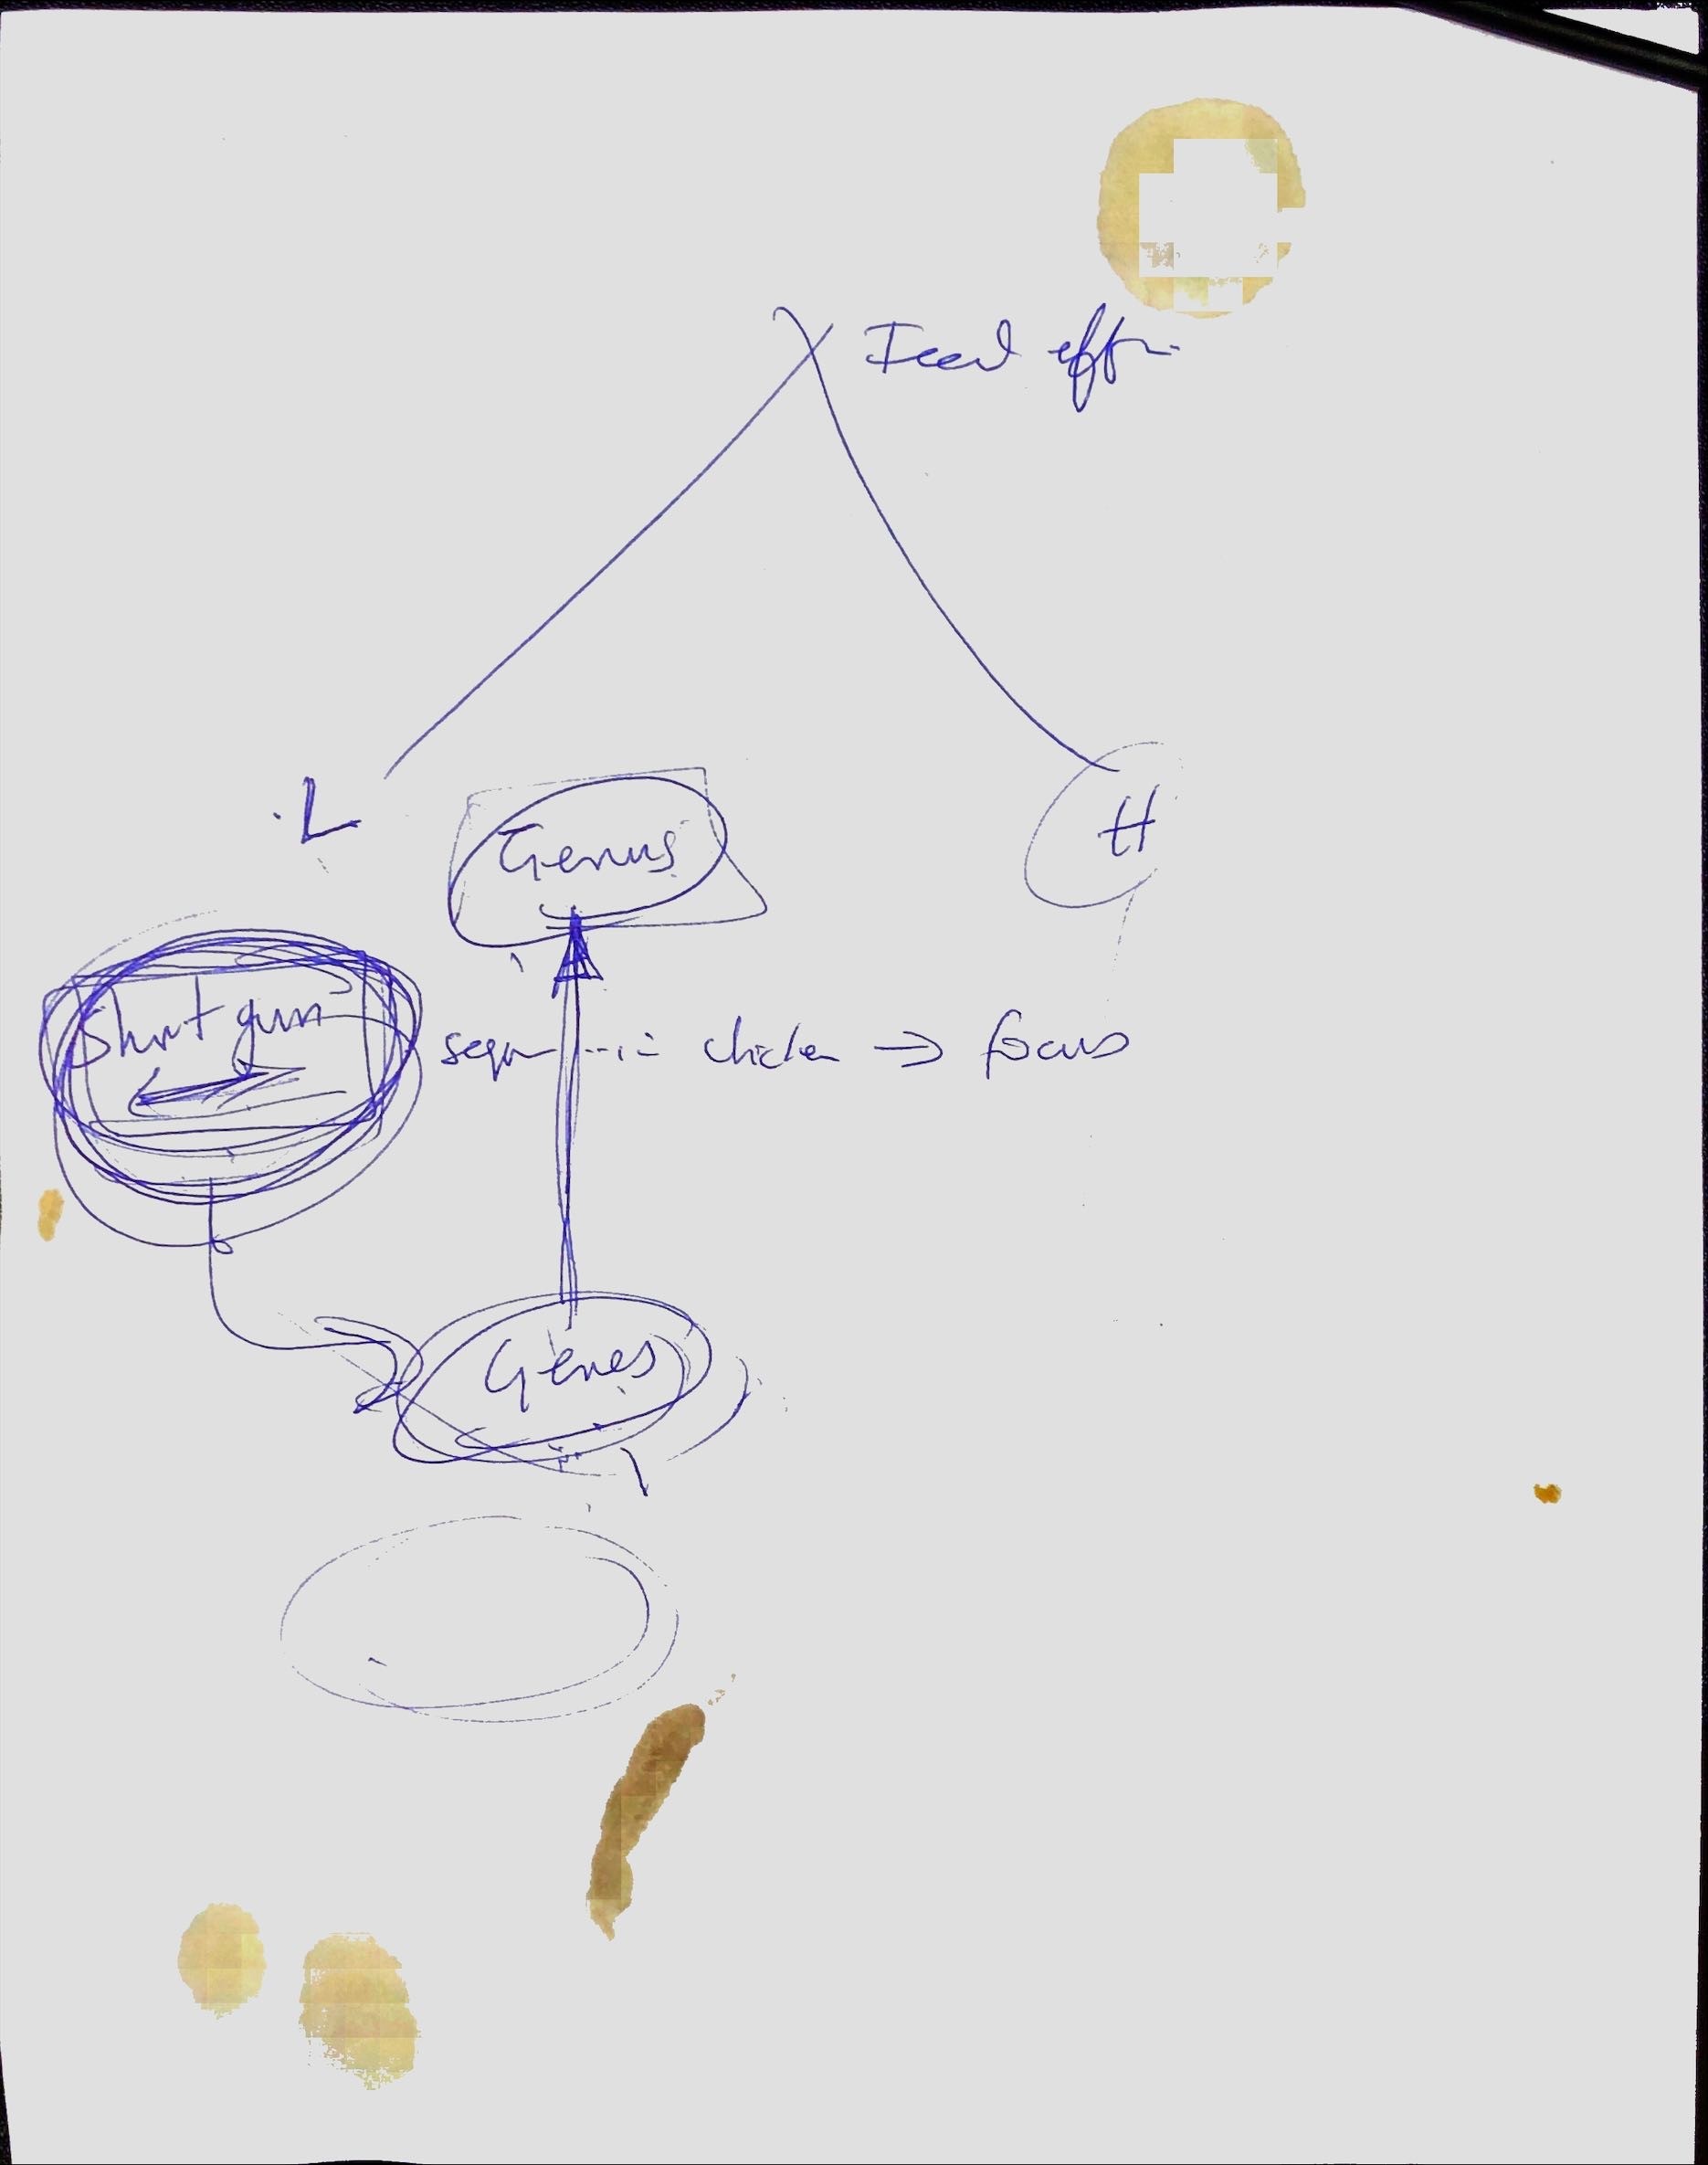 Feed eff
L
Genus
H
Shotgun
chicken → focus
Genes